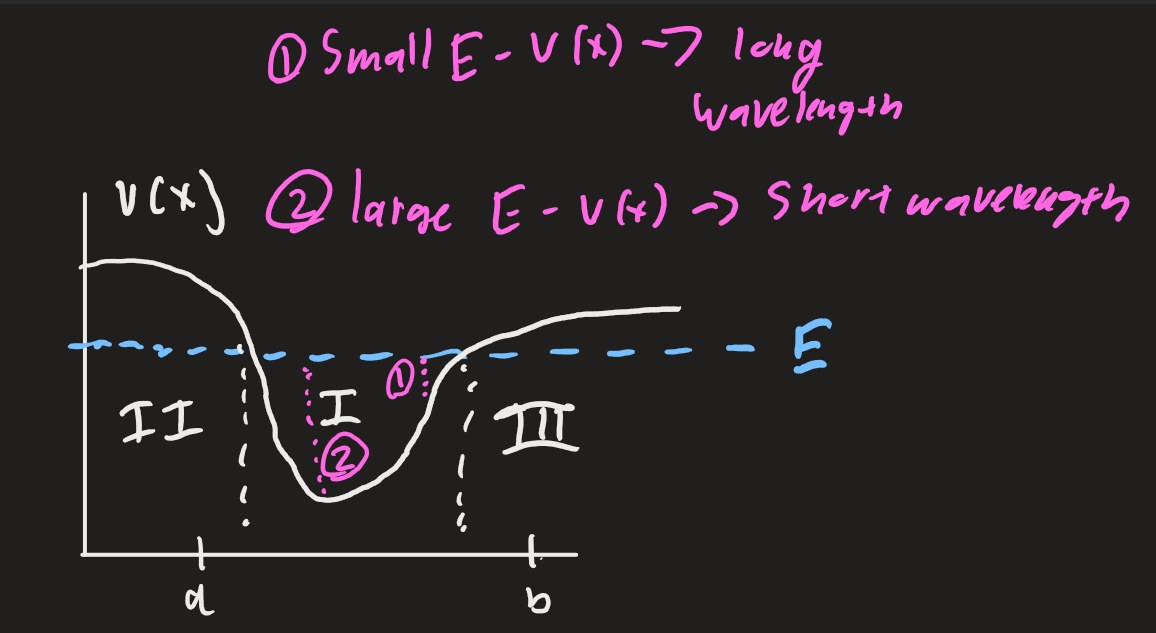 ① Small E - V(x) → long
wavelength
V(x)
② large E - V(x) → Short wavelength
E
①
I
II
III
②
a
b